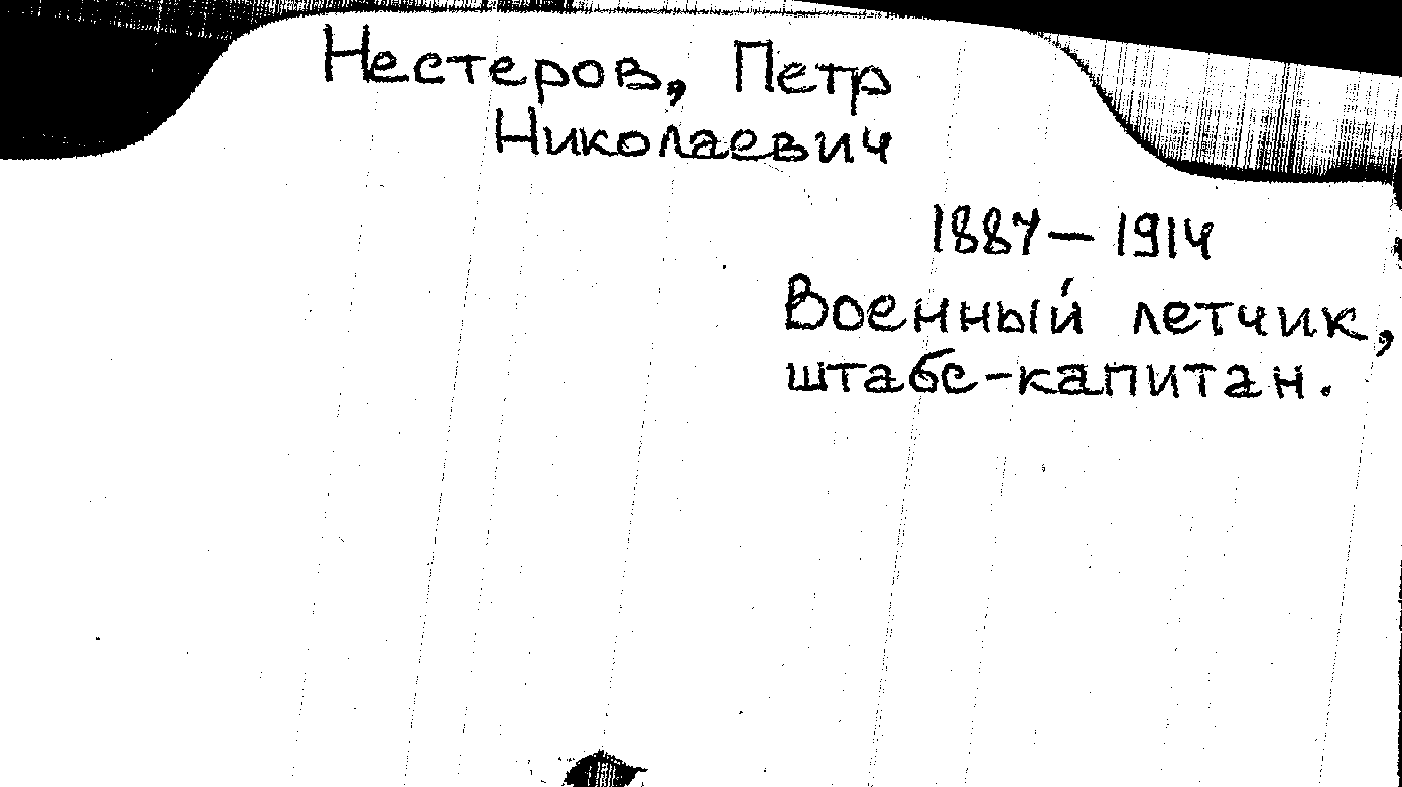 Нестеров, Петр
Николаевич
1887 — 1914
Военный летчик,
штабс-капитан.